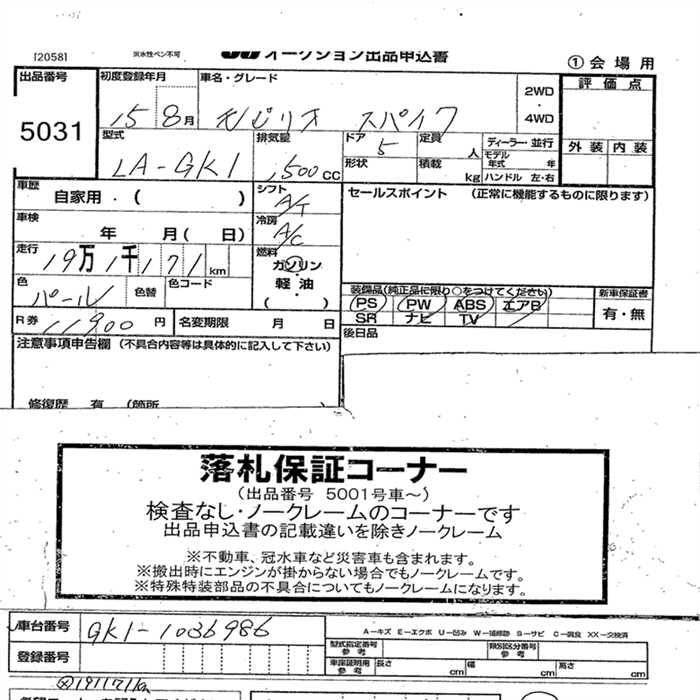 [2058] ※水性ペン不可 オークション出品申込書 ①会場用
出品番号 初度登録年月 車名・グレード 2WD・4WD 評価点
5031 15 8月 モビリオ スパイク
型式 排気量 ドア 定員 人 ディーラー・並行 外装 内装
LA-GK1 1,500CC 5 形状 積載 kg モデル年式 年 ハンドル 左・右
車歴 自家用・( ) シフト A/T セールスポイント (正常に機能するものに限ります)
車検 年 月( 日) 冷房 A/C
走行 19万1千171km 燃料 ガソリン・軽油( )
色 パール 色替 色コード 装備品(純正品に限り○をつけてください) 新車保証書
PS PW ABS エアB 有・無
R券 11900円 名変期限 月 日 SR ナビ TV
注意事項申告欄(不具合内容等は具体的に記入して下さい) 後日品
修復歴 有 (箇所 )
落札保証コーナー
(出品番号 5001号車~)
検査なし・ノークレームのコーナーです
出品申込書の記載違いを除きノークレーム
※不動車、冠水車など災害車も含まれます。
※搬出時にエンジンが掛からない場合でもノークレームです。
※特殊特装部品の不具合についてもノークレームになります。
車台番号 GK1-1036986 A-キズ E-エクボ U-凹み W-補修跡 S-サビ C-腐食 XX-交換済
登録番号 型式指定番号 参考 類別区分番号 参考
車庫証明用 参考 長さ cm 幅 cm 高さ cm
191171km